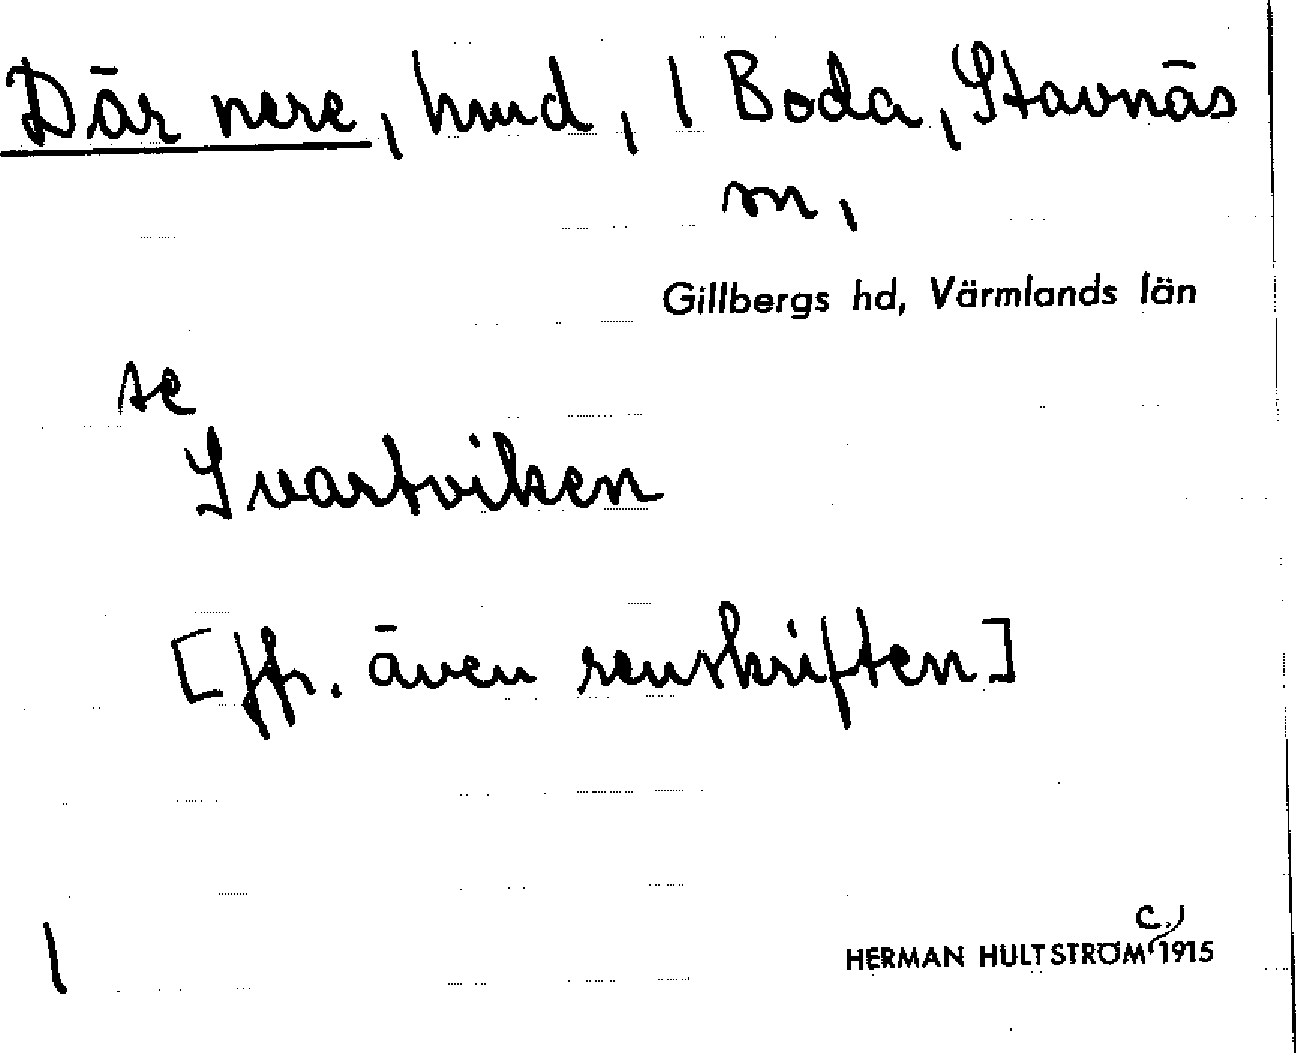 Där nere, hmd, 1 Boda, Stavnäs
sn,
Gillbergs hd, Värmlands län
se
Svartviken
[Jfr. även renskriften]
1
c.
HERMAN HULTSTRÖM 1915